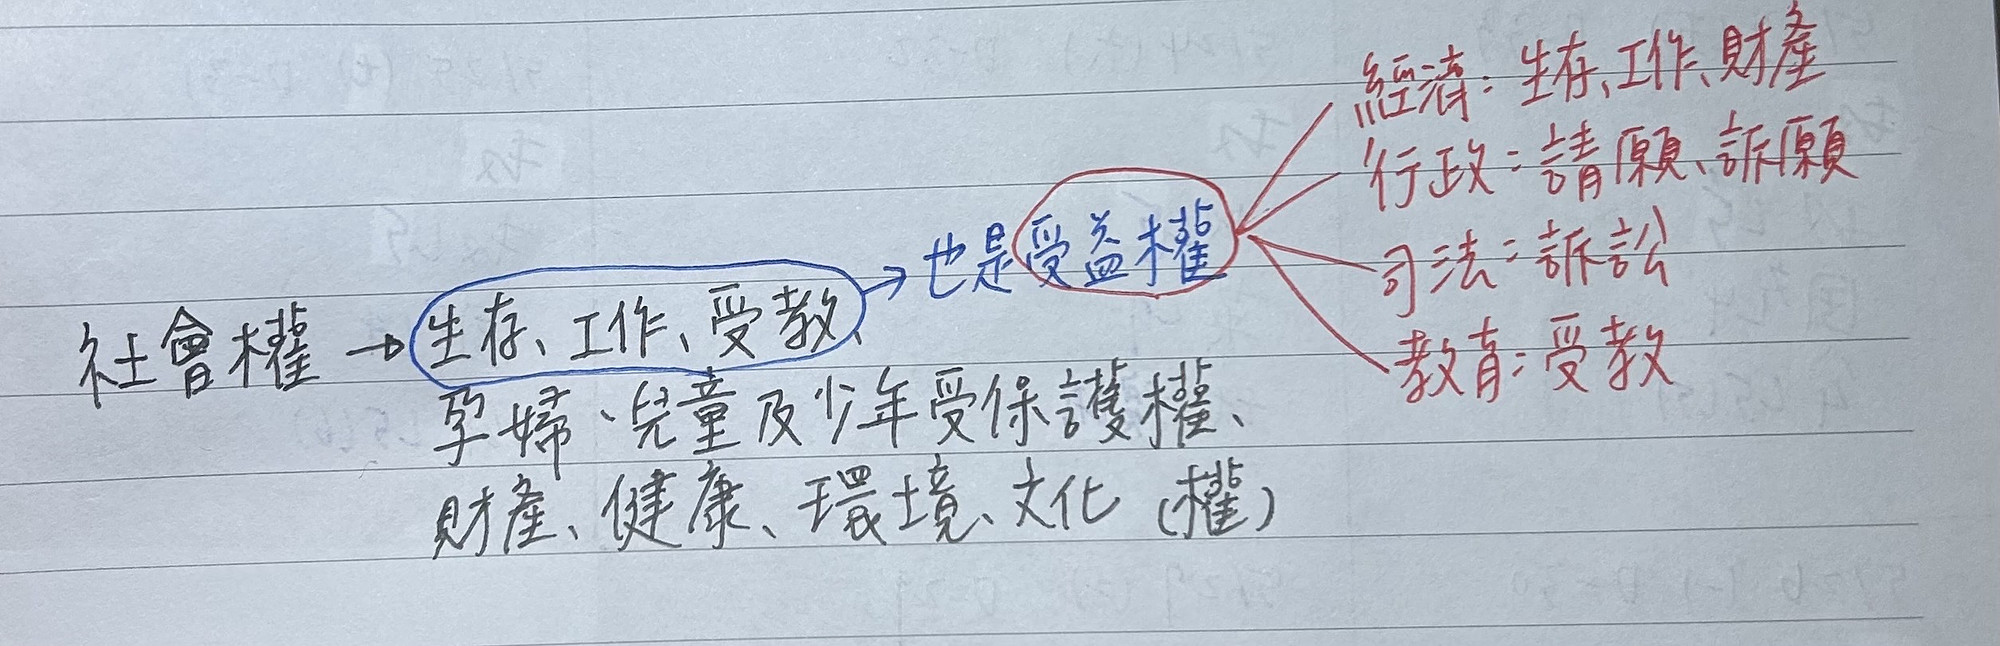 社會權 → 生存、工作、受教、
孕婦、兒童及少年受保護權、
財產、健康、環境、文化（權）
→ 也是受益權
經濟：生存、工作、財產
行政：請願、訴願
司法：訴訟
教育：受教